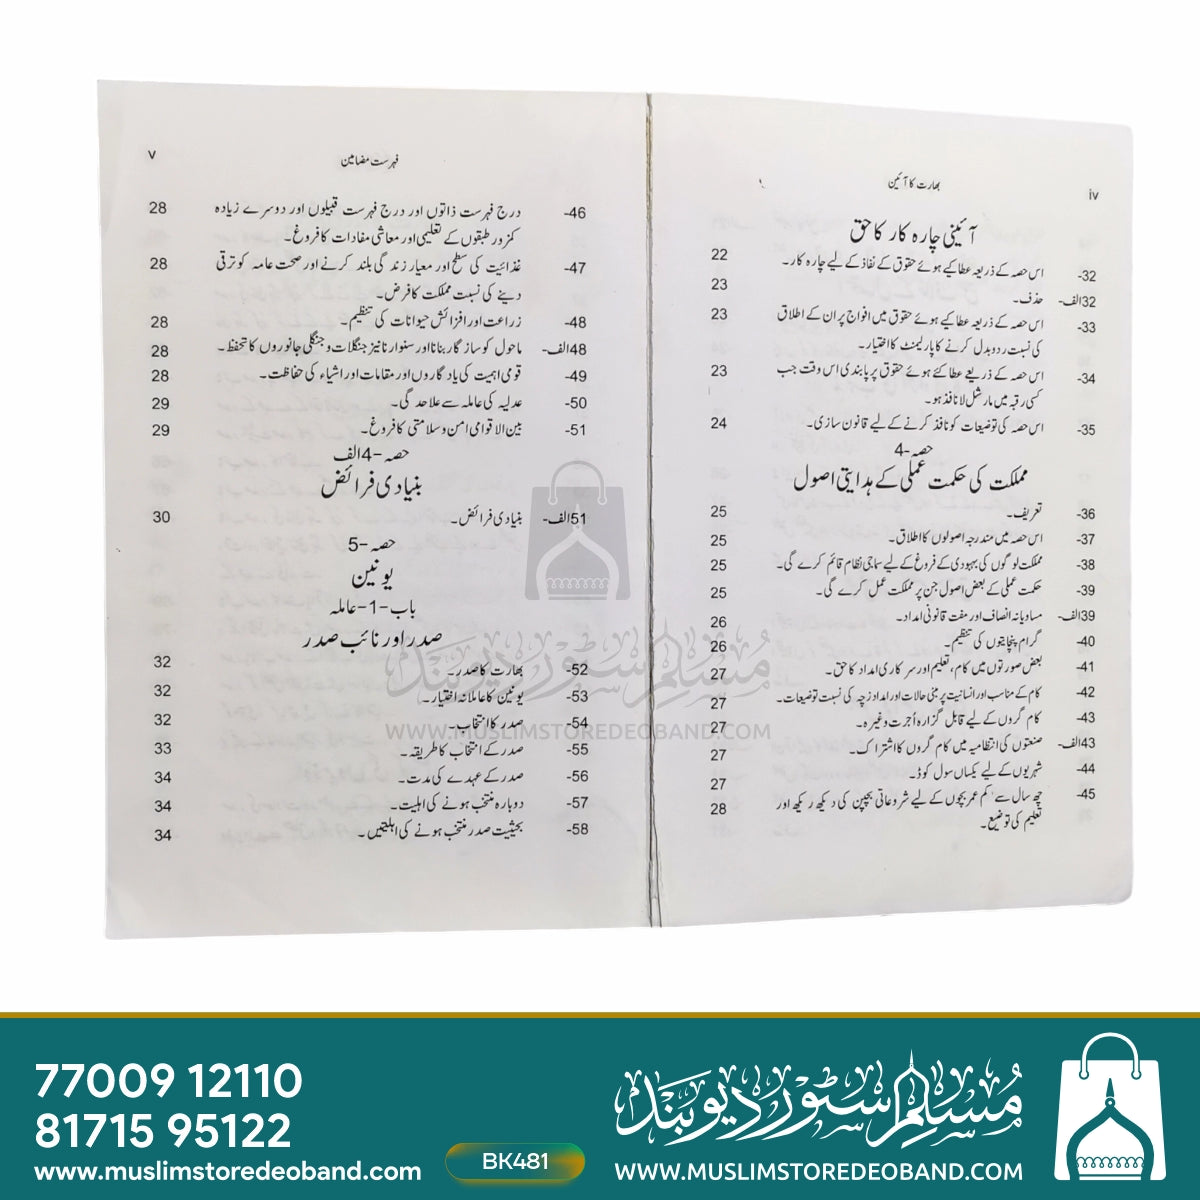 iv
بھارت کا آئین
آئینی چارہ کار کا حق
32- اس حصہ کے ذریعہ عطا کیے ہوئے حقوق کے نفاذ کے لیے چارہ کار۔ 22
32الف- حذف۔ 23
33- اس حصہ کے ذریعہ عطا کیے ہوئے حقوق میں افواج پر ان کے اطلاق 23
کی نسبت ردوبدل کرنے کا پارلیمنٹ کا اختیار۔
34- اس حصہ کے ذریعے عطا کئے ہوئے حقوق پر پابندی اس وقت جب 23
کسی رقبہ میں مارشل لا نافذ ہو۔
35- اس حصہ کی توضیعات کو نافذ کرنے کے لیے قانون سازی۔ 24
حصہ-4
مملکت کی حکمت عملی کے ہدایتی اصول
36- تعریف۔ 25
37- اس حصہ میں مندرجہ اصولوں کا اطلاق۔ 25
38- مملکت لوگوں کی بہبودی کے فروغ کے لیے سماجی نظام قائم کرے گی۔ 25
39- حکمت عملی کے بعض اصول جن پر مملکت عمل کرے گی۔ 25
39الف- مساویانہ انصاف اور مفت قانونی امداد۔ 26
40- گرام پنچایتوں کی تنظیم۔ 26
41- بعض صورتوں میں کام، تعلیم اور سرکاری امداد کا حق۔ 27
42- کام کے مناسب اور انسانیت پر مبنی حالات اور امداد زچہ کی نسبت توضیعات۔ 27
43- کام گروں کے لیے قابل گزارہ اُجرت وغیرہ۔ 27
43الف- صنعتوں کی انتظامیہ میں کام گروں کا اشتراک۔ 27
44- شہریوں کے لیے یکساں سول کوڈ۔ 27
45- چھ سال سے کم عمر بچوں کے لیے شروعاتی بچپن کی دیکھ ریکھ اور 28
تعلیم کی توضیع۔
فہرست مضامین
v
46- درج فہرست ذاتوں اور درج فہرست قبیلوں اور دوسرے زیادہ 28
کمزور طبقوں کے تعلیمی اور معاشی مفادات کا فروغ۔
47- غذائیت کی سطح اور معیار زندگی بلند کرنے اور صحت عامہ کو ترقی 28
دینے کی نسبت مملکت کا فرض۔
48- زراعت اور افزائش حیوانات کی تنظیم۔ 28
48الف- ماحول کو سازگار بنانا اور سنوارنا نیز جنگلات و جنگلی جانوروں کا تحفظ۔ 28
49- قومی اہمیت کی یادگاروں اور مقامات اور اشیاء کی حفاظت۔ 28
50- عدلیہ کی عاملہ سے علاحدگی۔ 29
51- بین الاقوامی امن و سلامتی کا فروغ۔ 29
حصہ-4الف
بنیادی فرائض
51الف- بنیادی فرائض۔ 30
حصہ-5
یونین
باب-1-عاملہ
صدر اور نائب صدر
52- بھارت کا صدر۔ 32
53- یونین کا عاملانہ اختیار۔ 32
54- صدر کا انتخاب۔ 32
55- صدر کے انتخاب کا طریقہ۔ 33
56- صدر کے عہدے کی مدت۔ 34
57- دوبارہ منتخب ہونے کی اہلیت۔ 34
58- بحیثیت صدر منتخب ہونے کی اہلیتیں۔ 34
مسلم سٹور دیوبند
WWW.MUSLIMSTOREDEOBAND.COM
77009 12110
81715 95122
www.muslimstoredeoband.com
BK481
مسلم سٹور دیوبند
WWW.MUSLIMSTOREDEOBAND.COM